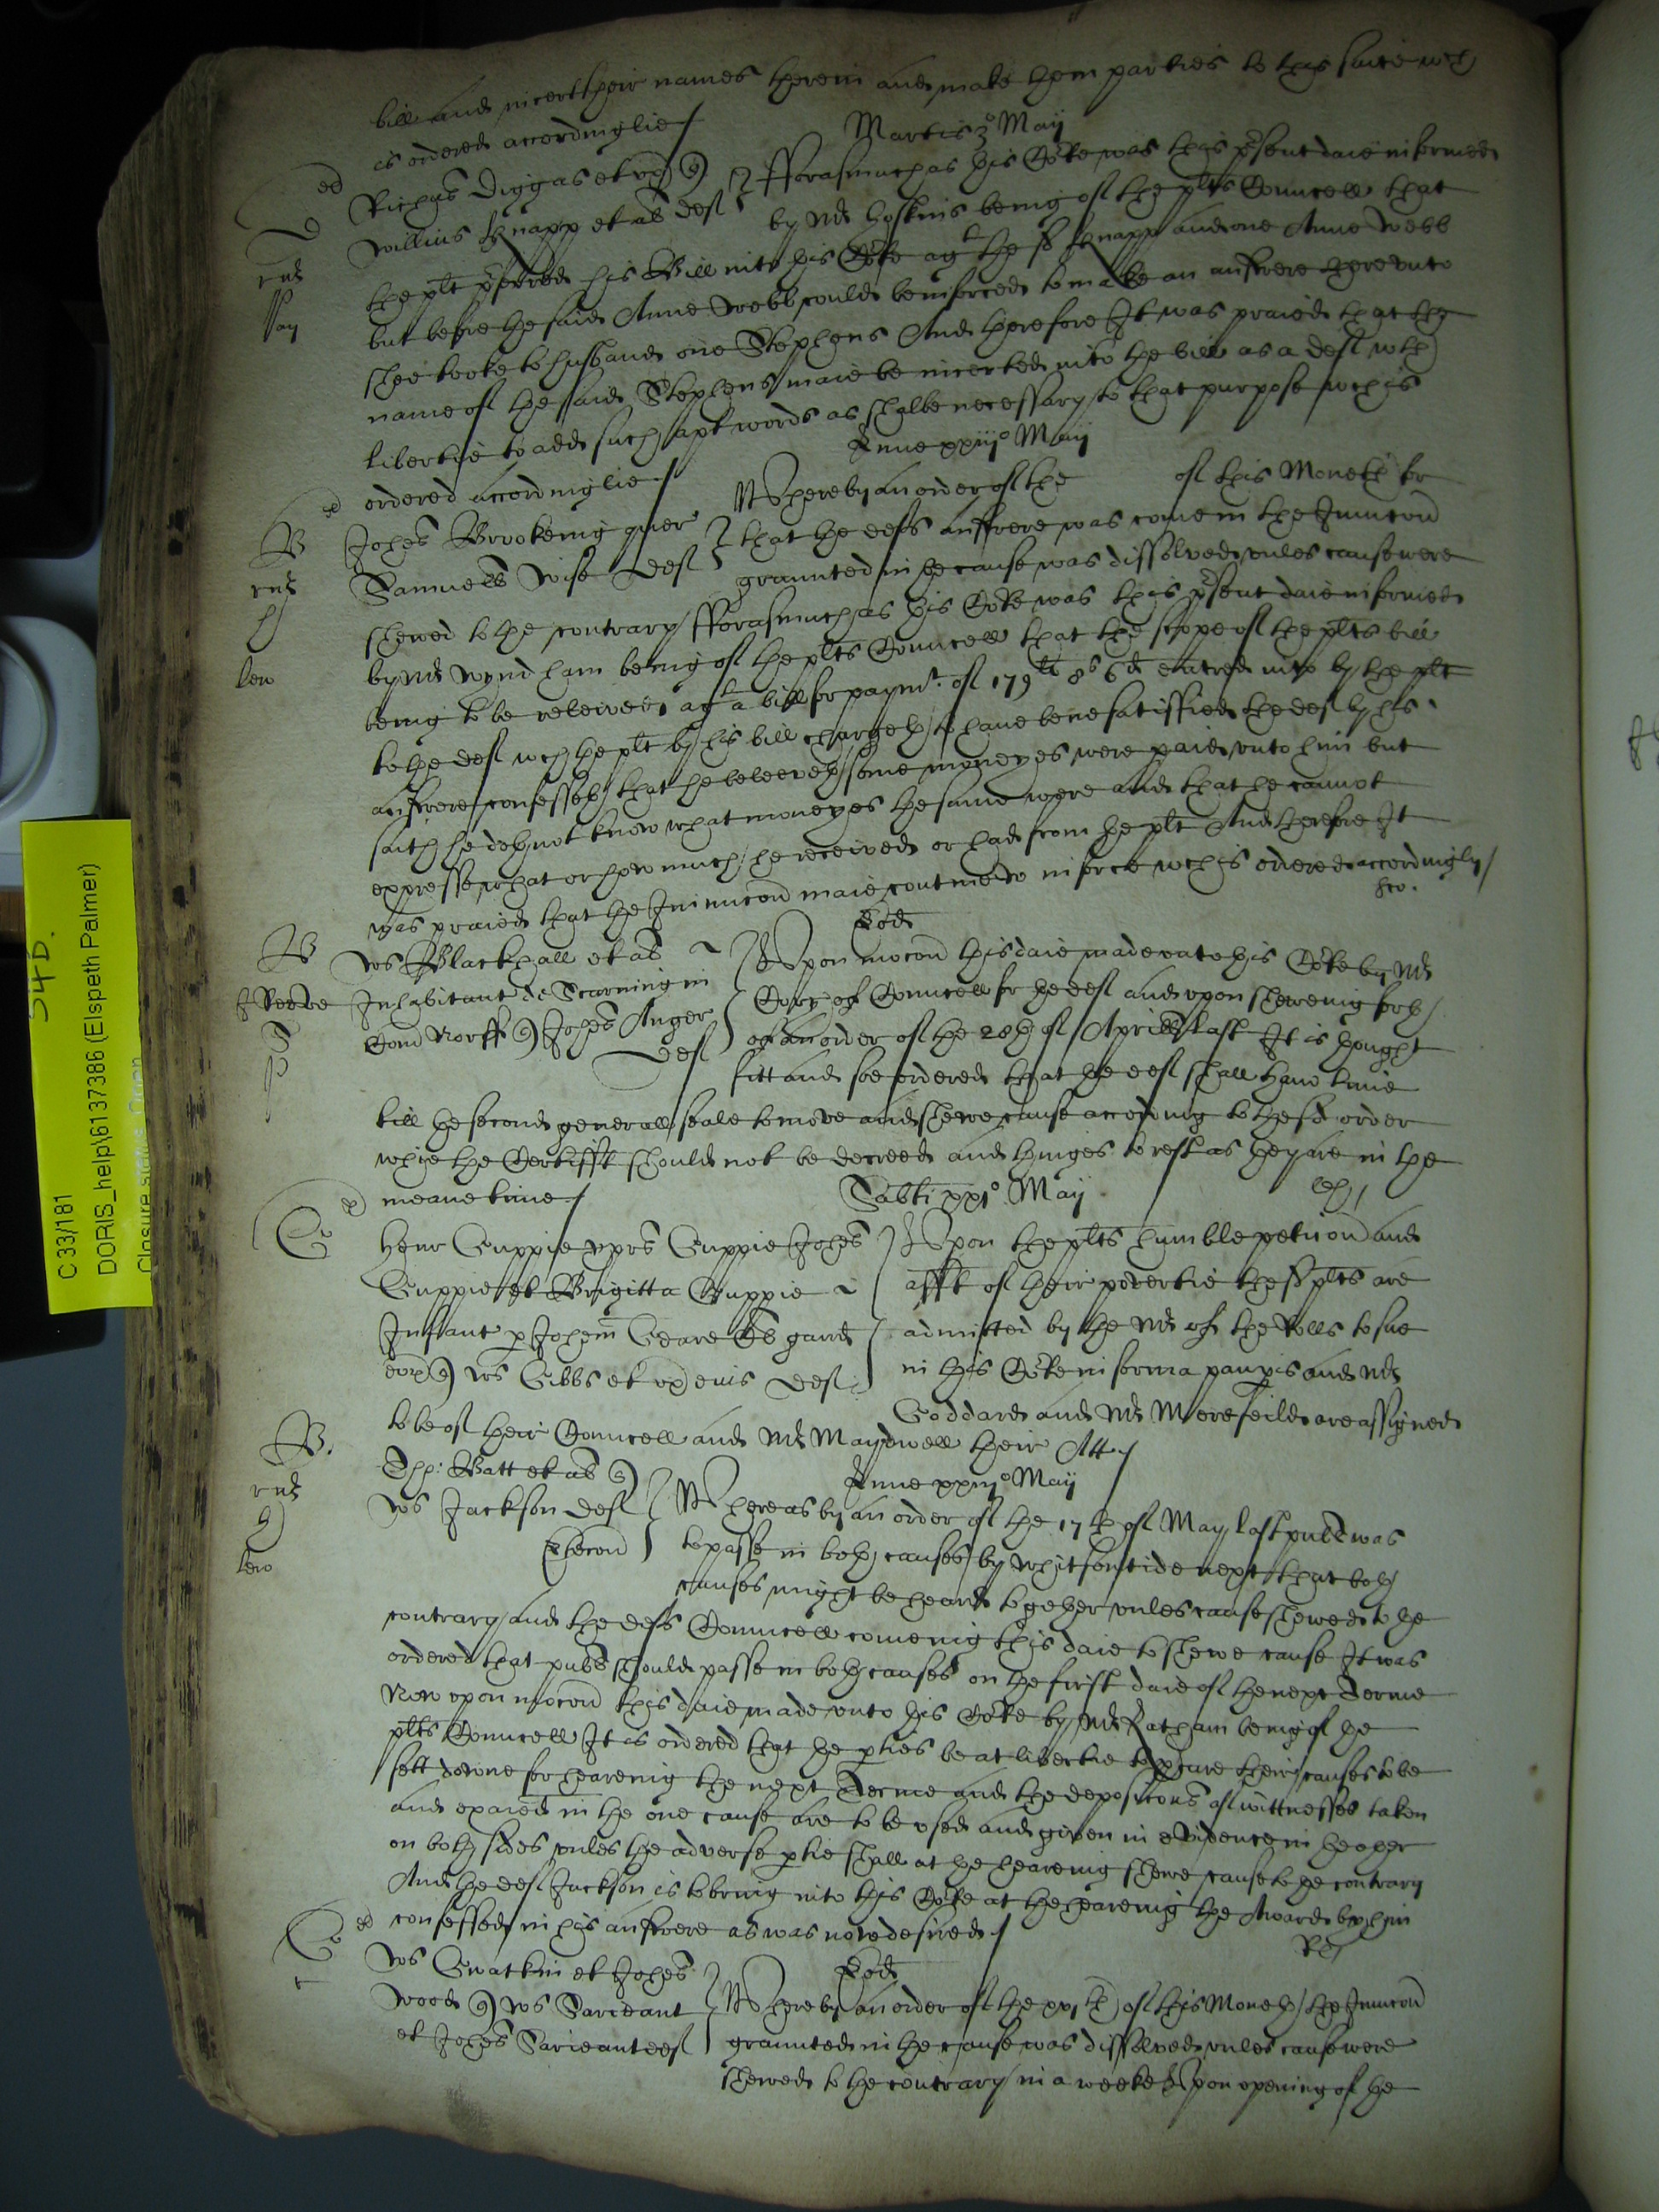 bill and incert their names therein and make them parties to this suite wch
is ordered accordinglie /
Martis 3o Maij
Richas Diggas et ux
Willius Knapp et als def
fforasmuch as this Corte was this psent daie informed
by Mr Hoskins being of the plts Councell that
the plt pferred his Bill into this Corte agt the sd Knapp and one Anne Webb
but before the said Anne Webb could be inforced to make an answere therevnto
shee tooke to husband one Stephens And therefore It was praied that the
name of the said Stephens maie be incerted into the bill as a deft wth
libertie to add such apt words as shalbe necessary to that purpose wch is
ordered accordinglie /
June xxiijo Maij
Johes Brookeinig quer
Samuell Wise def
Whereby an order of the of this Moneth for
that the defts answere was come in the Iniuncon
graunted in the cause was dissolved vnles cause were
shewed to the contrary / fforasmuch as this Corte was this psent daie informed
by Mr Wyndham being of the plts Councell that the scope of the plts bill
being to be releived agt a bill for paymt. of 179li 8s 6d entred into by the plt
to the deft wch the plt by his bill chargeth to have bene satisfied the deft by his
answere confesseth that he beleeveth some moneyes were paid vnto him but
saith he doth not know what moneyes the same were and that he cannot
expresse what or how much he received or had from the plt And therefore It
was praied that the Iniuncon maie contine to in force wch is ordered accordingly /
Eod
Ws Blackhall et als
Inhabitant de Scarning in
Com Norff Johes Anger
def
Vpon mocon this daie made vnto this Corte by Mr
Cory of Councell for the deft and vpon shewing forth
of an order of the 28th of Aprill last It is thought
fitt and soe ordered that the deft shall have time
till the second generall seale to move and shewe cause according to the sd order
whie the Certifft should not be decreed and thinges to rest as they are in the
meane time /
Sabti xxjo Maij
Henr Guppie vprs Guppie Johes
Guppie et Brigitta Guppie
Infant p Johem Geare Gard
Ws Gibbs et ux eius def
Vpon the plts humble peticion and
afft of their povertie the sd plts are
admitted by the Mr of the Rolls to sue
in this Corte in forma paupis and Mr
Goddard and Mr Merefeild are assigned
to be of their Councell and Mr Maydwell their Att /
Tho: Batt et als
Ws Jackson def
June xxiijo Maij
Whereas by an order of the 17th of May last publ was
to passe in both causes by Whitsontide next that both
causes might be heard together vnles cause shewed to the
contrary / and the defts Councell comeing this daie to shewe cause It was
ordered that publ should passe in both causes on the first daie of the next Terme
Now vpon mocon this daie made vnto this Corte by Mr Latham being of the
plts Councell It is ordered that the pties be at libertie to pcure their causes to be
sett downe for heareing the next Terme and the deposicons of wittnesses taken
and expaied in the one cause are to be vsed and given in evidence in the other
on both sides vnles the adverse ptie shall at the heareing shewe cause to the contrary
And the deft Jackson is to bring into this Corte at the heareing the Award by him
confessed in his answere as was now desired /
Eod
Ws Gwatkin et Johes
Wood Ws Sarieant
et Johes Sarieant def
Whereby an order of the xxjth of this Moneth / the Iniuncon
graunted in the cause was dissolved vnles cause were
shewed to the contrary in a weeke Vpon opening of the
54D.
C 33/181
DORIS_help\6137386 (Elspeth Palmer)